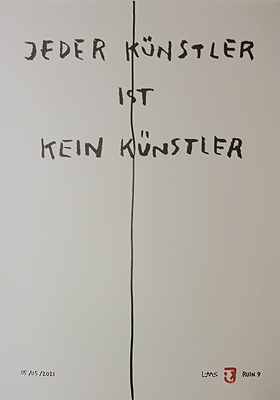 JEDER KÜNSTLER
IST
KEIN KÜNSTLER
05/05/2021
LMS
RUIN 9